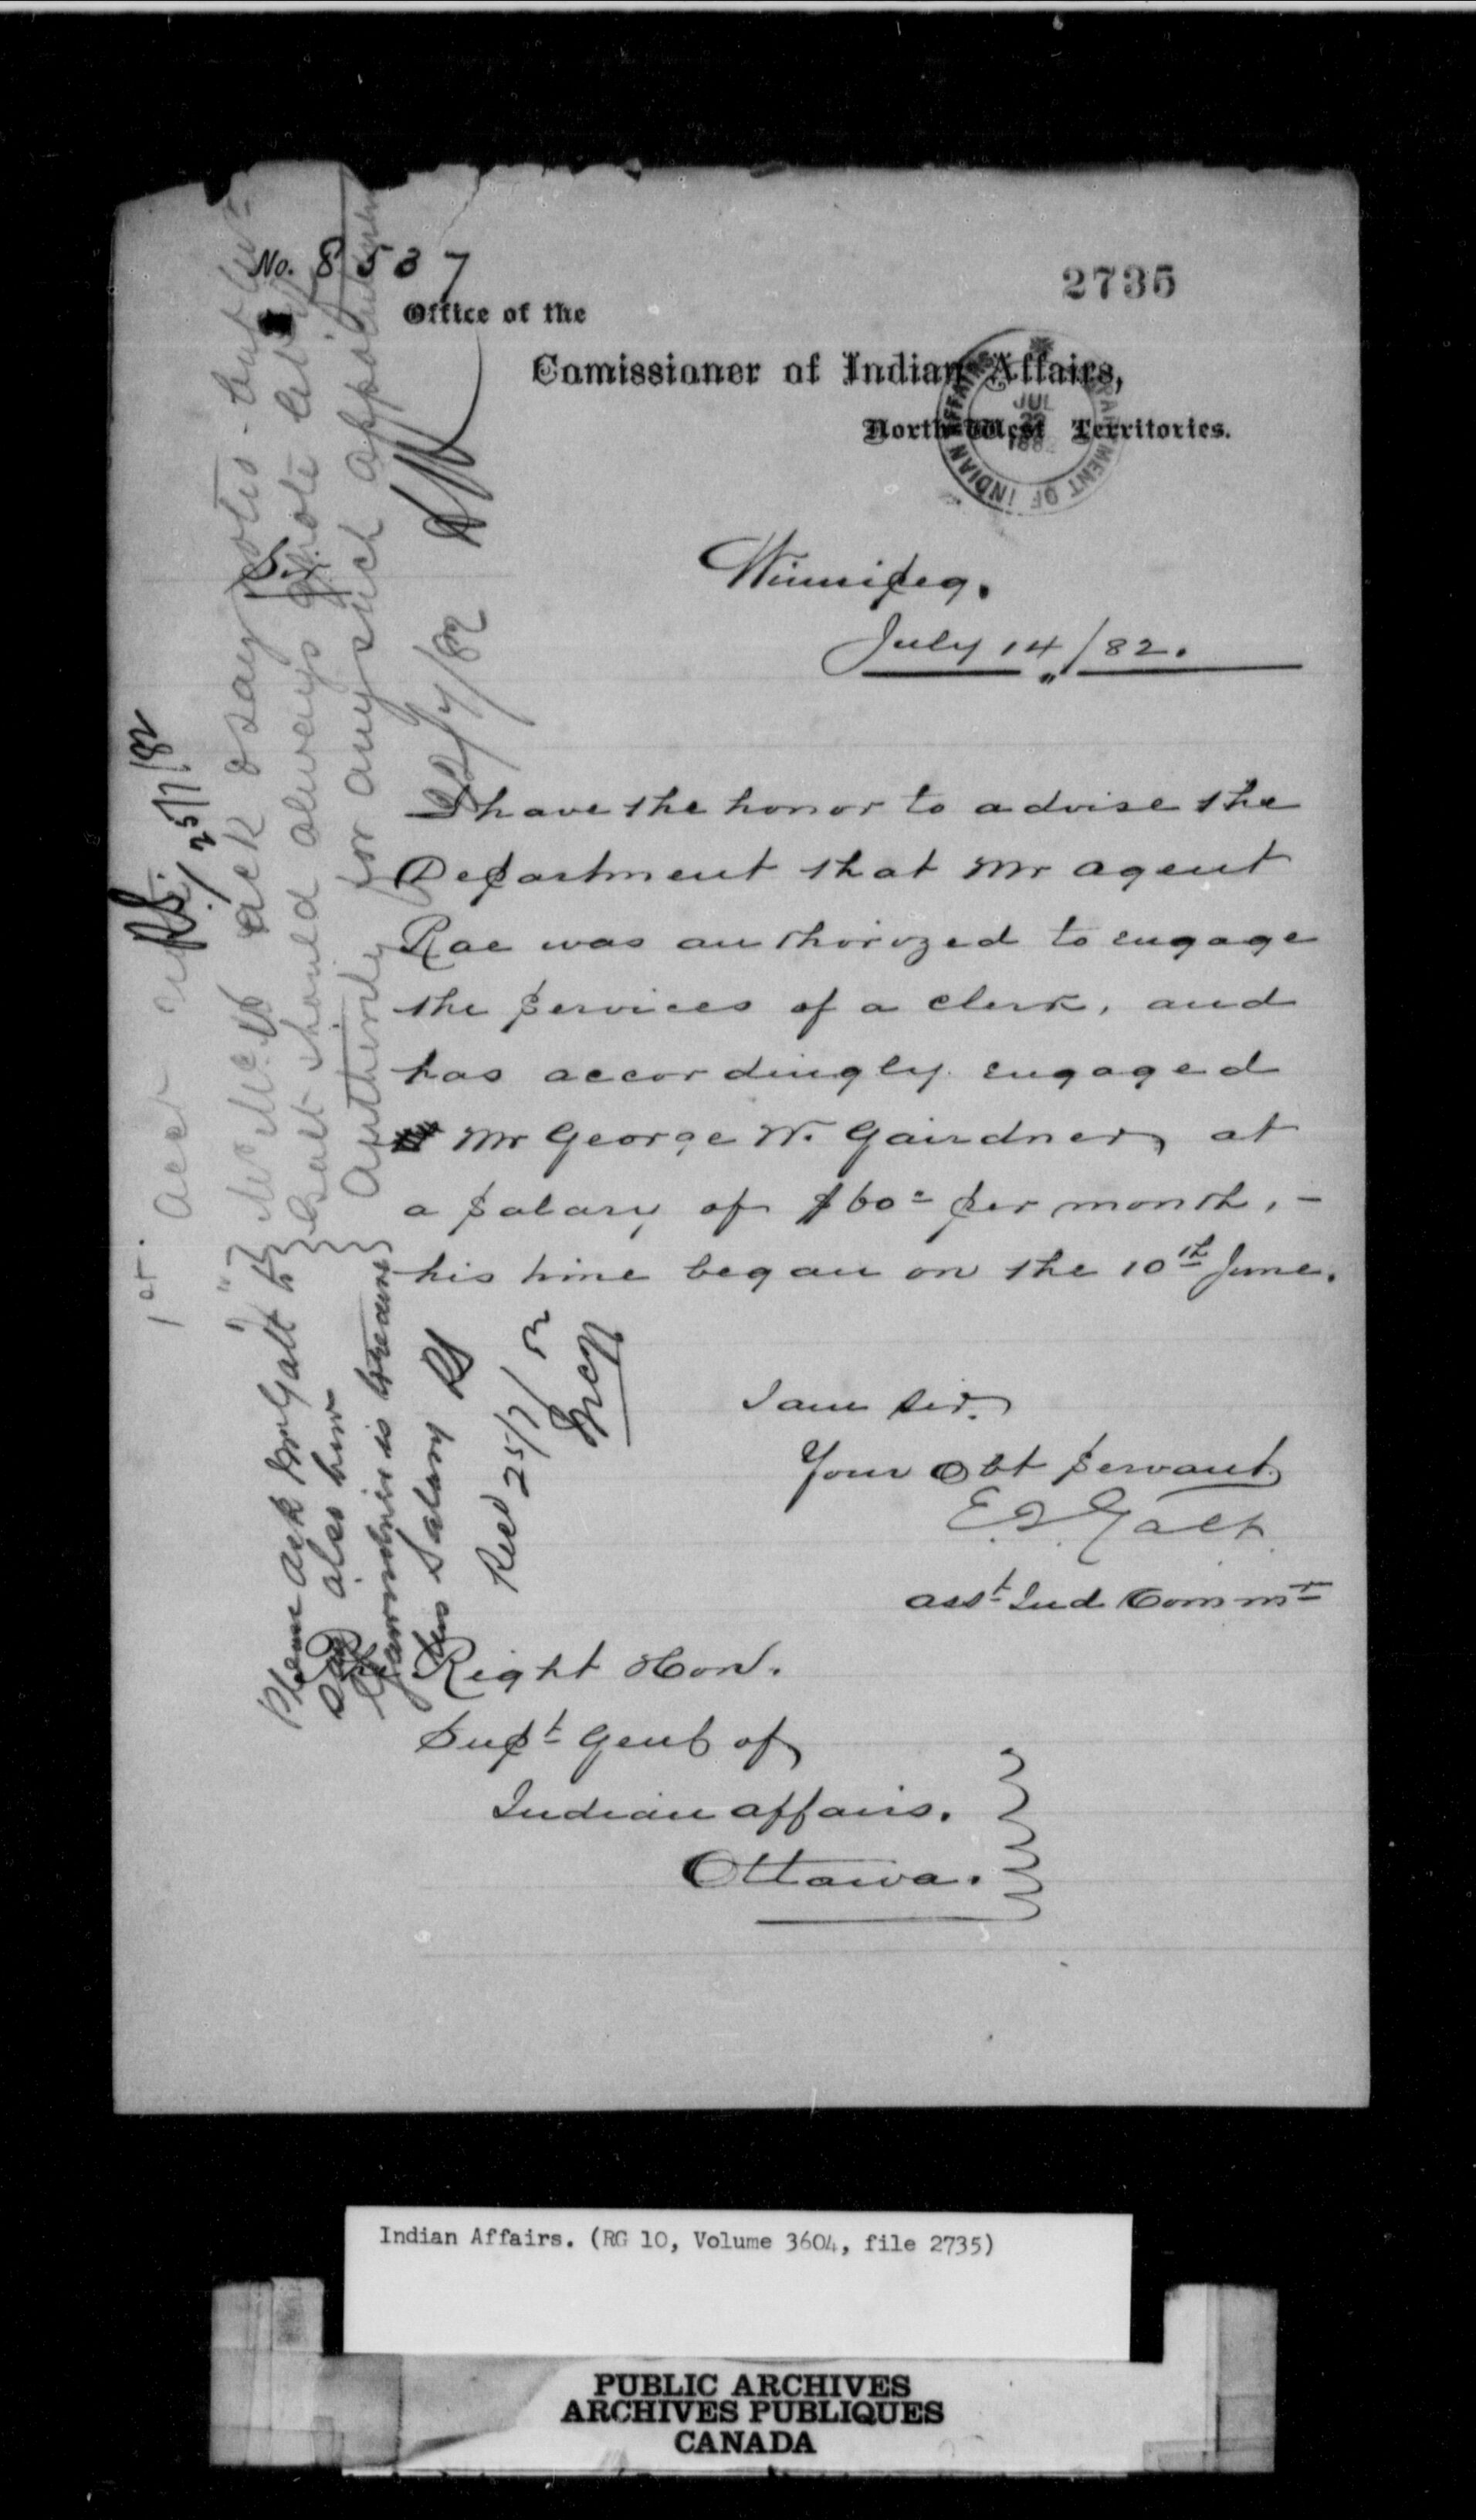 No. 8537
2735
Office of the
Comissioner of Indian Affairs,
North-West Territories.
DEPARTMENT OF INDIAN AFFAIRS
JUL
22
1882
Winnipeg.
July 14/82.
Sir.
I have the honor to advise the
Department that Mr agent
Rae was authorized to engage
the services of a clerk, and
has accordingly engaged
Mr George W. Gairdner, at
a salary of $60 per month, -
his time began on the 10th June.
I am sir.
Your Obt servant
E. T. Galt
asst Ind Commr
The Right Hon.
Supt Genl of
Indian affairs.
Ottawa.
1st. Acct
RS. 25/7/82
Mr McN ack & say noted - but
Galt should always quote
Authority for any such appointments
22/7/82
Please ask Mr Galt to
say also how
Gairdner is
his Salary RS
Recd 25/7/82
McN
Indian Affairs. (RG 10, Volume 3604, file 2735)
PUBLIC ARCHIVES
ARCHIVES PUBLIQUES
CANADA